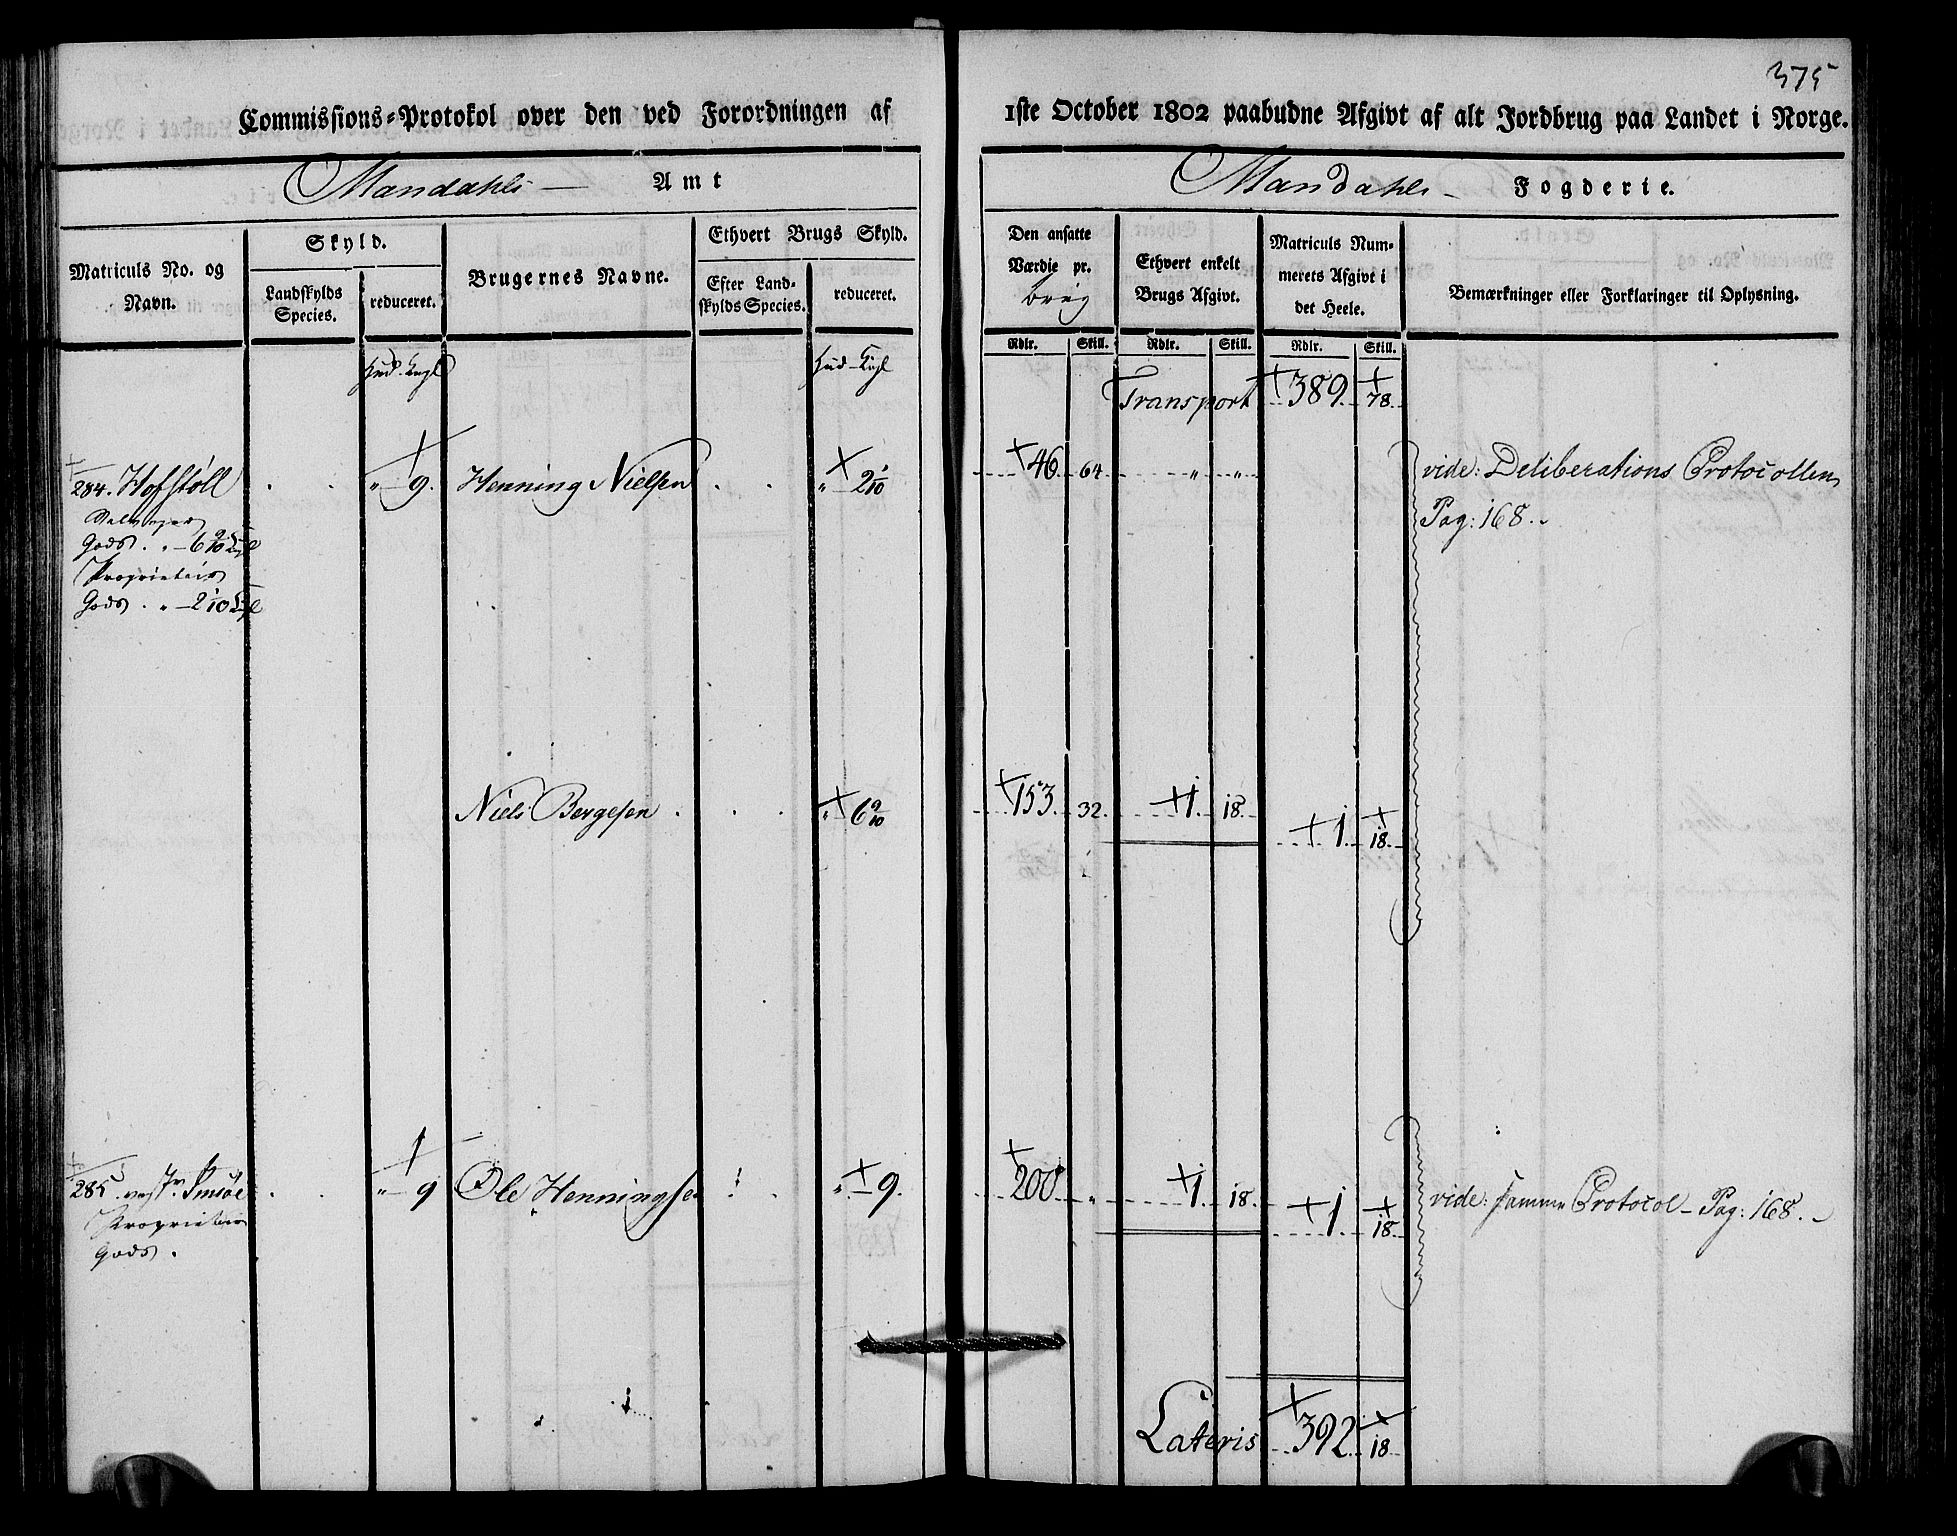 375
Commissions-Protokol over den ved Forordningen af 1ste October 1802 paabudne Afgivt af alt Jordbrug paa Landet i Norge.
Mandahls Amt
Mandahls Fogderie.
Matriculs No. og Navn.
Skyld.
Landskylds Species.
reduceret.
Brugernes Navne.
Ethvert Brugs Skyld.
Efter Landskylds Species.
reduceret.
Den ansatte Værdie pr. brug
Ethvert enkelt Brugs Afgivt.
Matriculs Nummerets Afgivt i det Heele.
Bemærkninger eller Forklaringer til Oplysning.
Rdlr. Skill. Rdlr. Skill. Rdlr. Skill.
Transport 389. 78.
284. " 9. Henning Nielsen " 2 1/10 46. 64 " " vide: Deliberations Protocollen
Pag: 168.
Gods. " 6 9/10
Proprietair
Gods. " 2 1/10
Niels Bergesen " 6 9/10 153. 32. 1. 18. 1. 18.
285. " 9 Ole Henningsen " 9. 200 " 1. 18. 1. 18. vide: samme Protocol Pag: 168.
Proprietair
Gods.
Lateris 392. 18